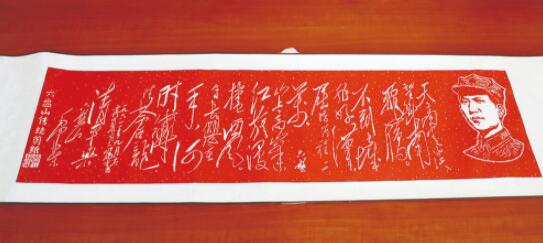 天高云淡
望断南
飞雁
不到长城
非好汉
屈指行程二
万 六盘
山上高峰
红旗漫
卷西风
今日长缨
在手何
时缚住
苍龙
清平乐
毛泽东
六盘山传统剪纸